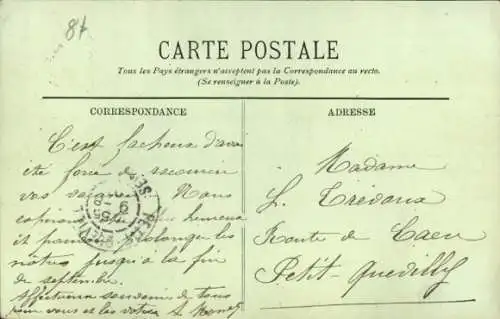 87
CARTE POSTALE
Tous les Pays étrangers n'acceptent pas la Correspondance au recto.
(Se renseigner à la Poste).
CORRESPONDANCE
ADRESSE
C'est facheux d'avoir
été forcé de
vos Nous
it prolonger les
nôtres jusqu'à la fin
de septembre.
Affectueux souvenir de tous
pour vous et les vôtres
Madame
L. Trévoux
Route de Caen
Petit-Quevilly